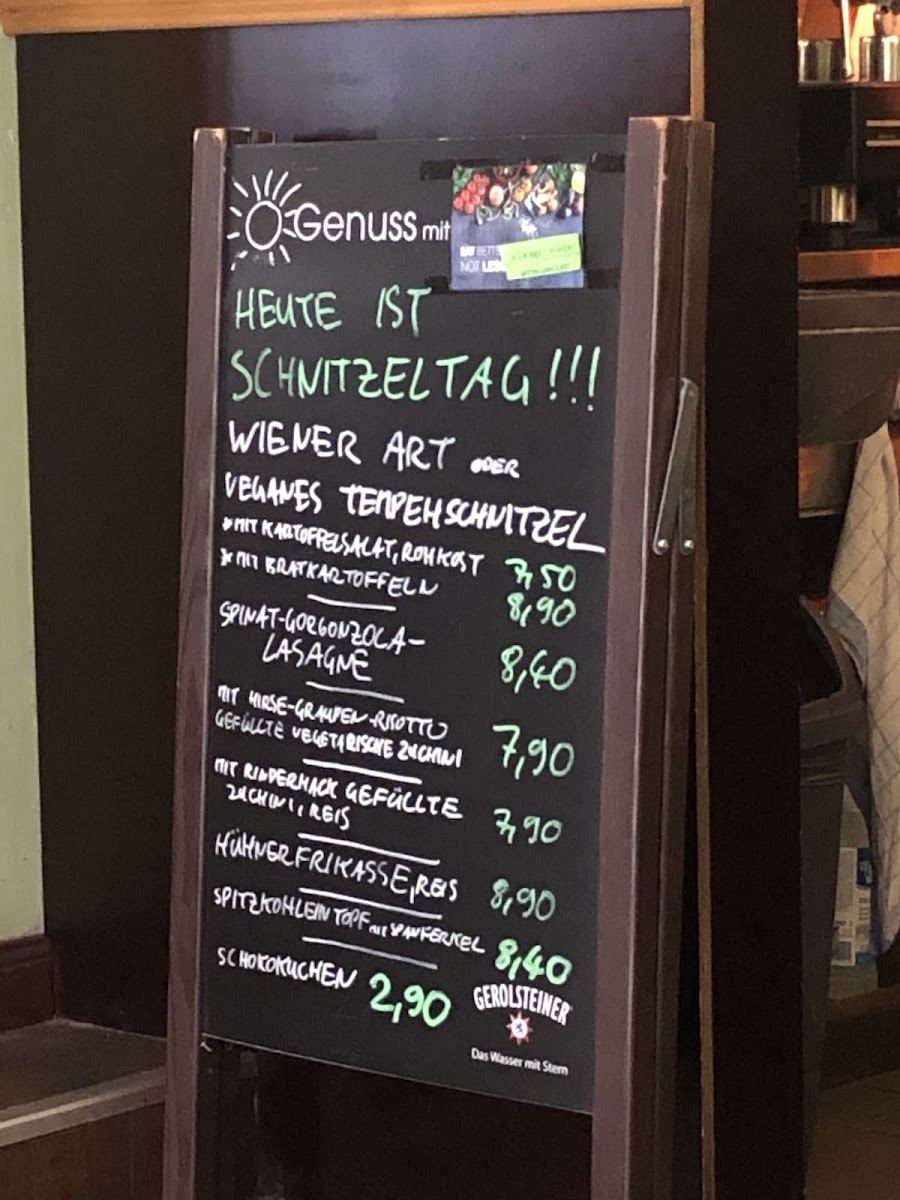 Genuss mit
EAT BETTE
NOT LESS
HEUTE IST
SCHNITZELTAG!!!
WIENER ART ODER
VEGANES TEMPEHSCHNITZEL
*MIT KARTOFFELSALAT, ROHKOST 7,50
*MIT BRATKARTOFFELN 8,90
SPINAT-GORGONZOLA-
LASAGNE 8,40
MIT HIRSE-GRAUPEN-RISOTTO
GEFÜLLTE VEGETARISCHE ZUCHINI 7,90
MIT RINDERHACK GEFÜLLTE
ZUCHINI, REIS 7,90
HÜHNERFRIKASSE, REIS 8,90
SPITZKOHLEINTOPF MIT SPANFERKEL 8,40
SCHOKOKUCHEN 2,90
GEROLSTEINER
Das Wasser mit Stern